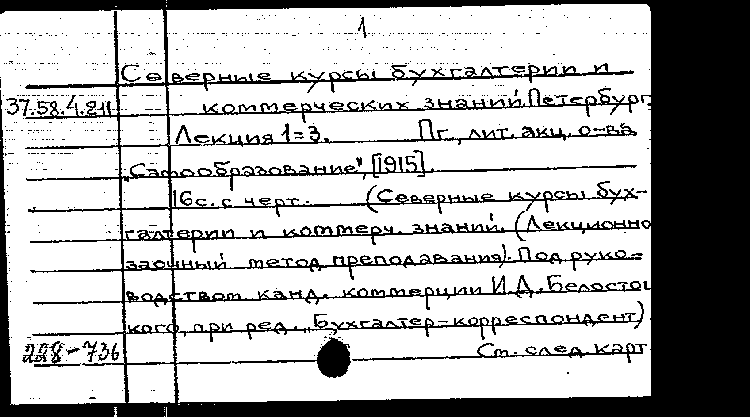 1
Северные курсы бухгалтерии и
37.58.4.211 коммерческих знаний. Петербург.
Лекция 1=3. Пг., лит. акц. о-ва
„Самообразование", [1915].
16 с. с черт. (Северные курсы бух-
галтерии и коммерч. знаний. (Лекционно
заочный метод преподавания). Под руко=
водством канд. коммерции И.Д. Белостоц
кого, при ред. „Бухгалтер-корреспондент)
228-736 См. след. карт